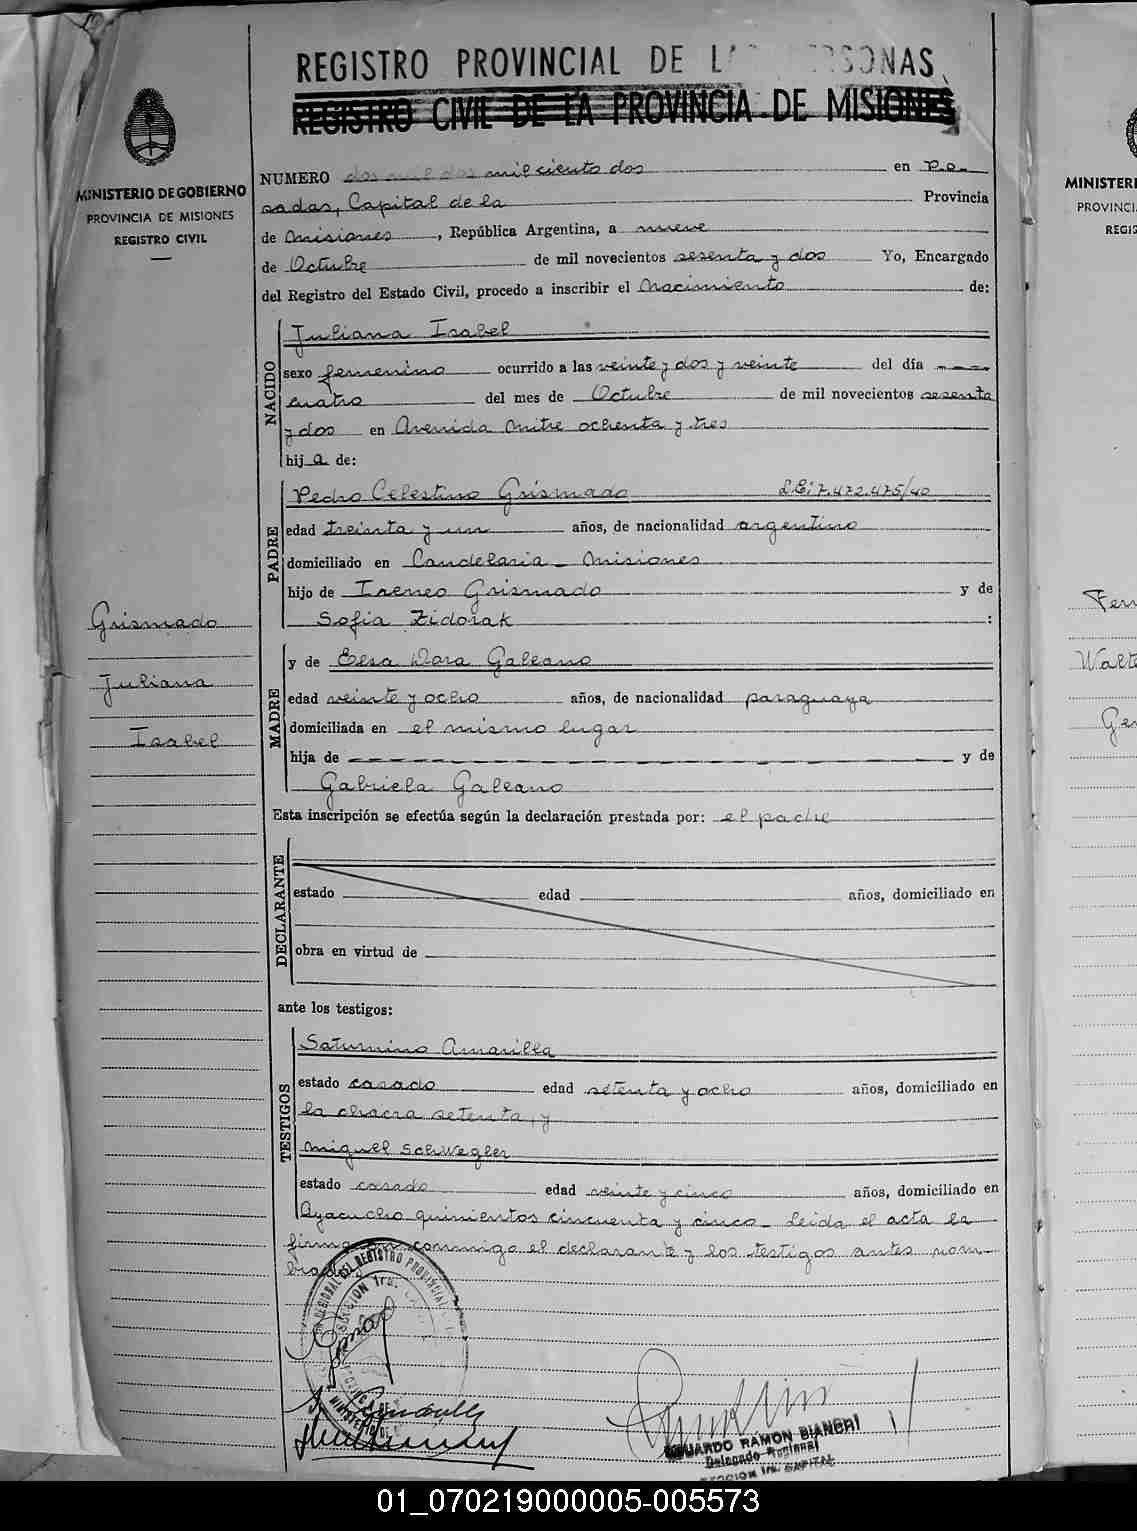 REGISTRO PROVINCIAL DE LAS PERSONAS
REGISTRO CIVIL DE LA PROVINCIA DE MISIONES
MINISTERIO DE GOBIERNO
PROVINCIA DE MISIONES
REGISTRO CIVIL
NUMERO dos mil dos mil ciento dos en Po-
sadas, Capital de la Provincia
de Misiones, República Argentina, a nueve
de Octubre de mil novecientos sesenta y dos Yo, Encargado
del Registro del Estado Civil, procedo a inscribir el Nacimiento de:
NACIDO
Juliana Isabel
sexo femenino ocurrido a las veinte y dos y veinte del día
cuatro del mes de Octubre de mil novecientos sesenta
y dos en Avenida Mitre ochenta y tres
hija de:
PADRE
Pedro Celestino Grismado L.E: 7.472.475/40
edad treinta y un años, de nacionalidad argentino
domiciliado en Candelaria - Misiones
hijo de Ireneo Grismado y de
Sofia Zidorak :
Grismado
Juliana
Isabel
MADRE
y de Elsa Dora Galeano
edad veinte y ocho años, de nacionalidad paraguaya
domiciliada en el mismo lugar
hija de y de
Gabriela Galeano
Esta inscripción se efectúa según la declaración prestada por: el padre
DECLARANTE
estado edad años, domiciliado en
obra en virtud de
ante los testigos:
TESTIGOS
Saturnino Amarilla
estado casado edad setenta y ocho años, domiciliado en
la chacra setenta, y
Miguel Schwegler
estado casado edad veinte y cinco años, domiciliado en
Ayacucho quinientos cincuenta y cinco - Leida el acta la
firman conmigo el declarante y los testigos antes nom-
brados
EDUARDO RAMON BIANCHI
Delegado Regional
SECCION 1ra. CAPITAL
MINISTERI
PROVINCI
REGIS
Ferr
Walte
Ger
01_070219000005-005573